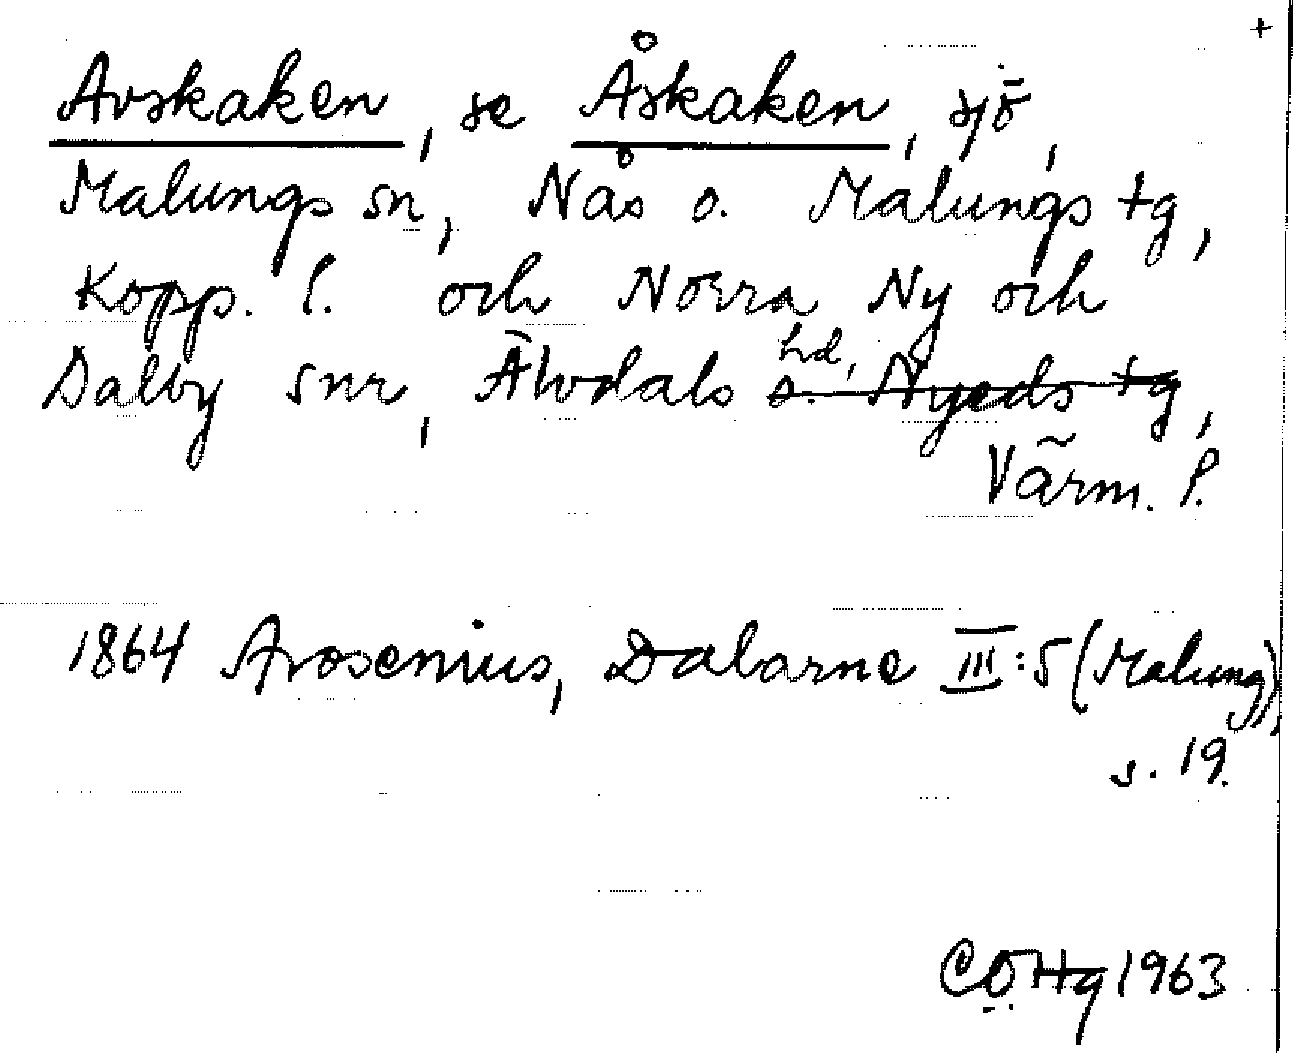 +
Avskaken, se Åskaken, sjö,
Malungs sn, Nås o. Malungs tg,
Kopp. l. och Norra Ny och
Dalby snr, Älvdals hd, s. Nyeds tg,
Värm. l.
1864 Arosenius, Dalarne III:5 (Malung),
s. 19.
CÖHg 1963